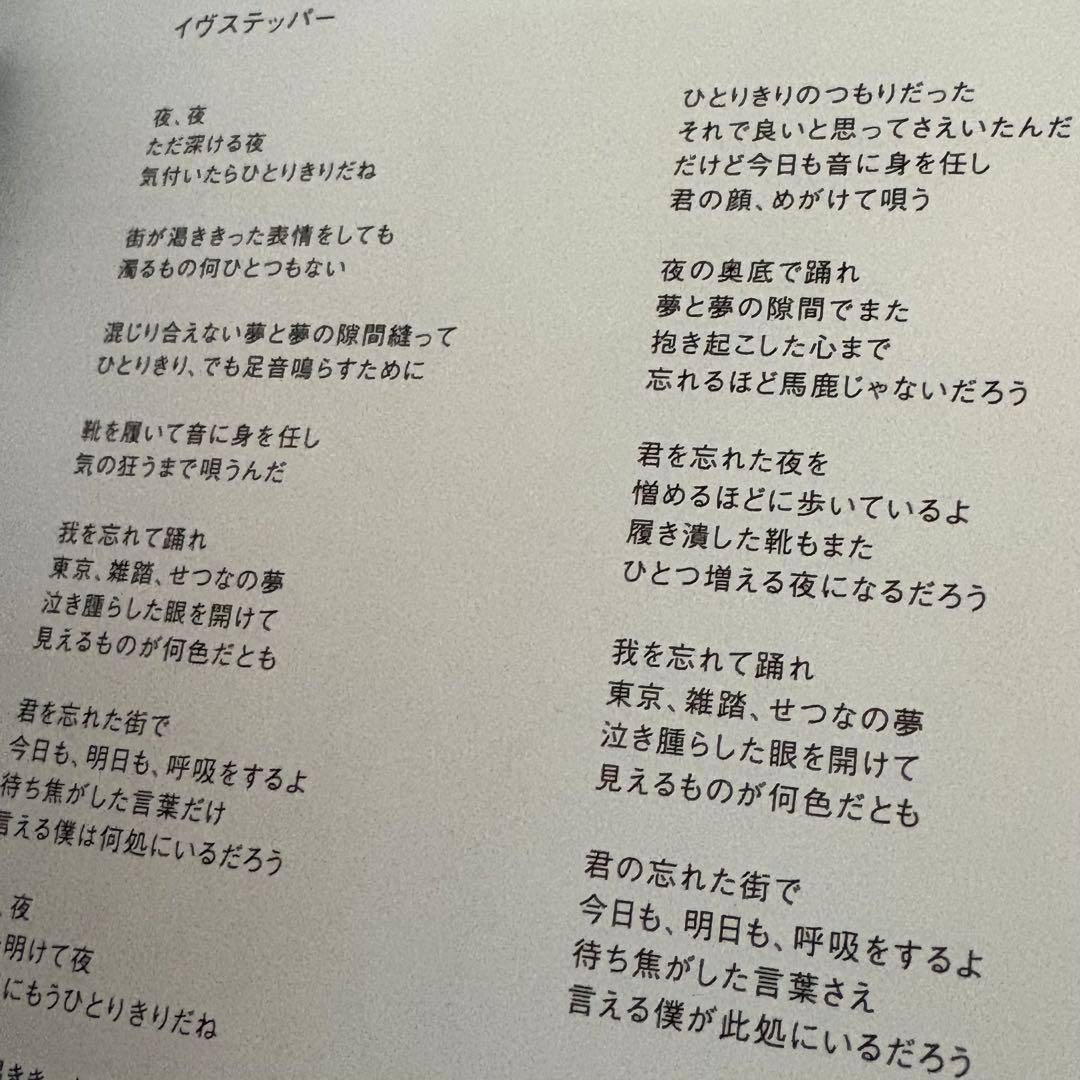 イヴステッパー
夜、夜
ただ深ける夜
気付いたらひとりきりだね
街が渇ききった表情をしても
濁るもの何ひとつもない
混じり合えない夢と夢の隙間縫って
ひとりきり、でも足音鳴らすために
靴を履いて音に身を任し
気の狂うまで唄うんだ
我を忘れて踊れ
東京、雑踏、せつなの夢
泣き腫らした眼を開けて
見えるものが何色だとも
君を忘れた街で
今日も、明日も、呼吸をするよ
待ち焦がした言葉だけ
言える僕は何処にいるだろう
、夜
明けて夜
にもうひとりきりだね
ひとりきりのつもりだった
それで良いと思ってさえいたんだ
だけど今日も音に身を任し
君の顔、めがけて唄う
夜の奥底で踊れ
夢と夢の隙間でまた
抱き起こした心まで
忘れるほど馬鹿じゃないだろう
君を忘れた夜を
憎めるほどに歩いているよ
履き潰した靴もまた
ひとつ増える夜になるだろう
我を忘れて踊れ
東京、雑踏、せつなの夢
泣き腫らした眼を開けて
見えるものが何色だとも
君の忘れた街で
今日も、明日も、呼吸をするよ
待ち焦がした言葉さえ
言える僕が此処にいるだろう